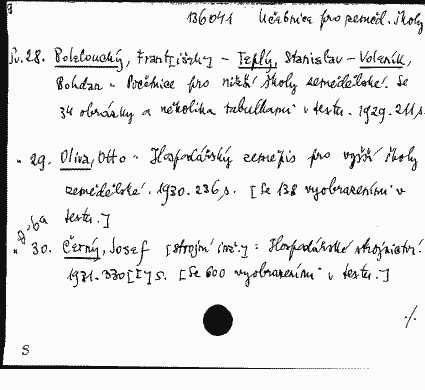 136041 Učebnice pro zeměd. školy
Sv. 28. Poleloucký, Frant[išek] - Teplý, Stanislav - Voleník,
Bohdan = Početnice pro nižší školy zemědělské. Se
34 obrázky a několika tabulkami v textu. 1929. 211 s.
" 29. Oliva, Otto = Hospodářský zeměpis pro vyšší školy
zemědělské. 1930. 236 s. [Se 138 vyobrazeními v
textu.]
" 30. Černý, Josef [strojní inž.] = Hospodářské strojnictví.
1931. 330 [I] s. [Se 600 vyobrazeními v textu.]
./.
S